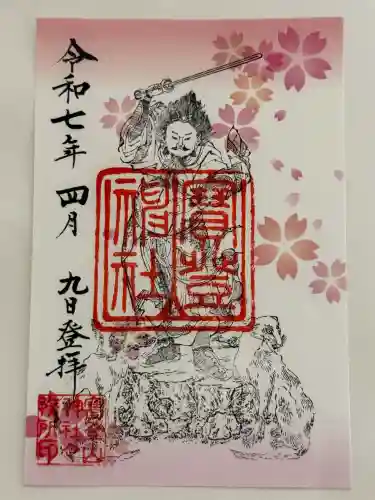 令和七年 四月 九日登拝
寳登山
神社
寳登山
神社々
務所印